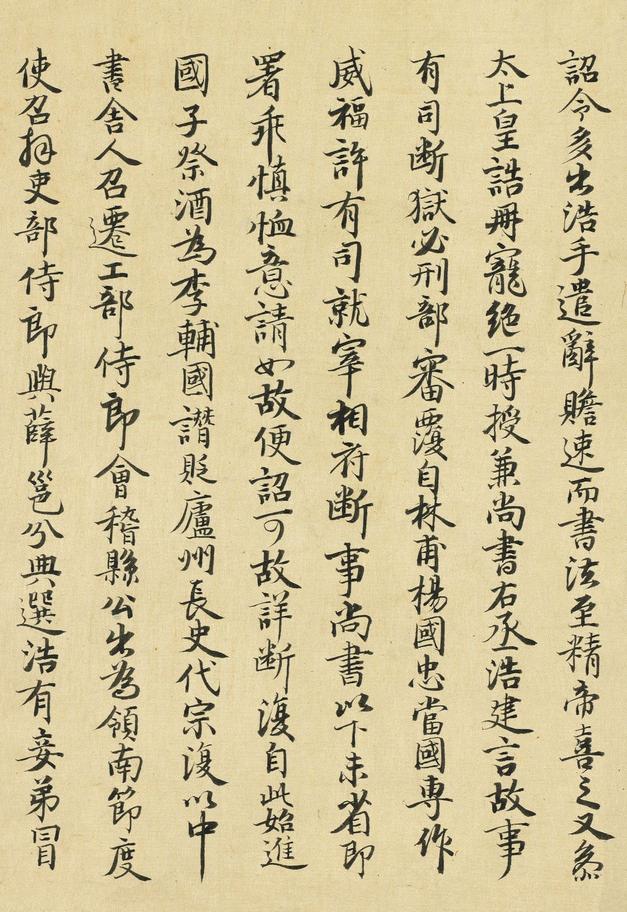 詔令多出浩手遣辭贍速而書法至精帝喜之又叅
太上皇誥冊寵絶一時授兼尚書右丞浩建言故事
有司断獄必刑部審覆自林甫楊國忠當國専作
威福許有司就宰相府断事尚書以下未省即
署乖慎恤意請如故便詔可故詳断復自此始進
國子祭酒為李輔國譖貶廬州長史代宗復以中
書舍人召遷工部侍郎會稽縣公出為嶺南節度
使召拜吏部侍郎與薛邕分典選浩有妾弟冒